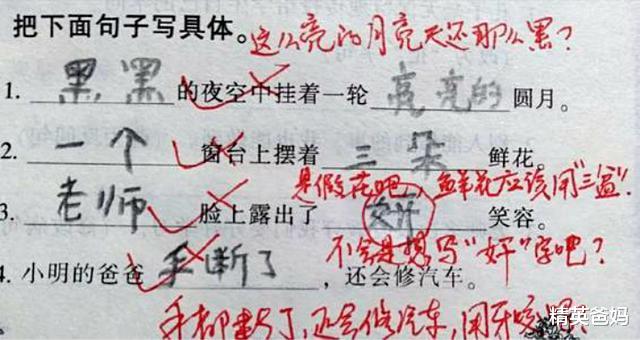 把下面句子写具体。这么亮的月亮天还那么黑？
1. 黑黑的夜空中挂着一轮亮亮的圆月。
2. 一个窗台上摆着三朵鲜花。
是假花吧，鲜花应该用"三盆"。
3. 老师脸上露出了奸笑容。
不会是想写"奸"字吧？
4. 小明的爸爸手断了，还会修汽车。
手都断了，还会修汽车，用牙咬
精英爸妈